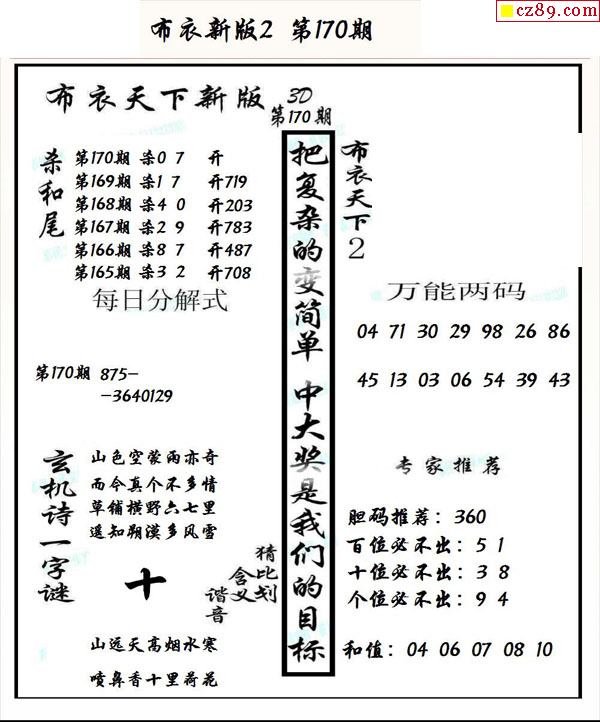 cz89.com
布衣新版2 第170期
布衣天下新版 3D
第170期
杀和尾
第170期 杀0 7 开
第169期 杀1 7 开719
第168期 杀4 0 开203
第167期 杀2 9 开783
第166期 杀8 7 开487
第165期 杀3 2 开708
每日分解式
第170期 875-
-3640129
玄机诗一字谜
山色空蒙雨亦奇
而今真个不多情
草铺横野六七里
遥知朔漠多风雪
十
猜比划
含义
谐音
山远天高烟水寒
喷鼻香十里荷花
把复杂的变简单 中大奖是我们的目标
布衣天下2
万能两码
04 71 30 29 98 26 86
45 13 03 06 54 39 43
专家推荐
胆码推荐：360
百位必不出：5 1
十位必不出：3 8
个位必不出：9 4
和值：04 06 07 08 10